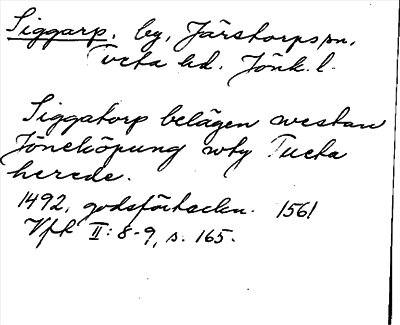 Siggarp, by, Järstorps sn,
Tveta hd. Jönk. l.
Siggatorp belägen westan
Jöneköpung wthy Tueta
herede.
1492, godsförteckn. 1561
Vfk II: 8-9, s. 165.